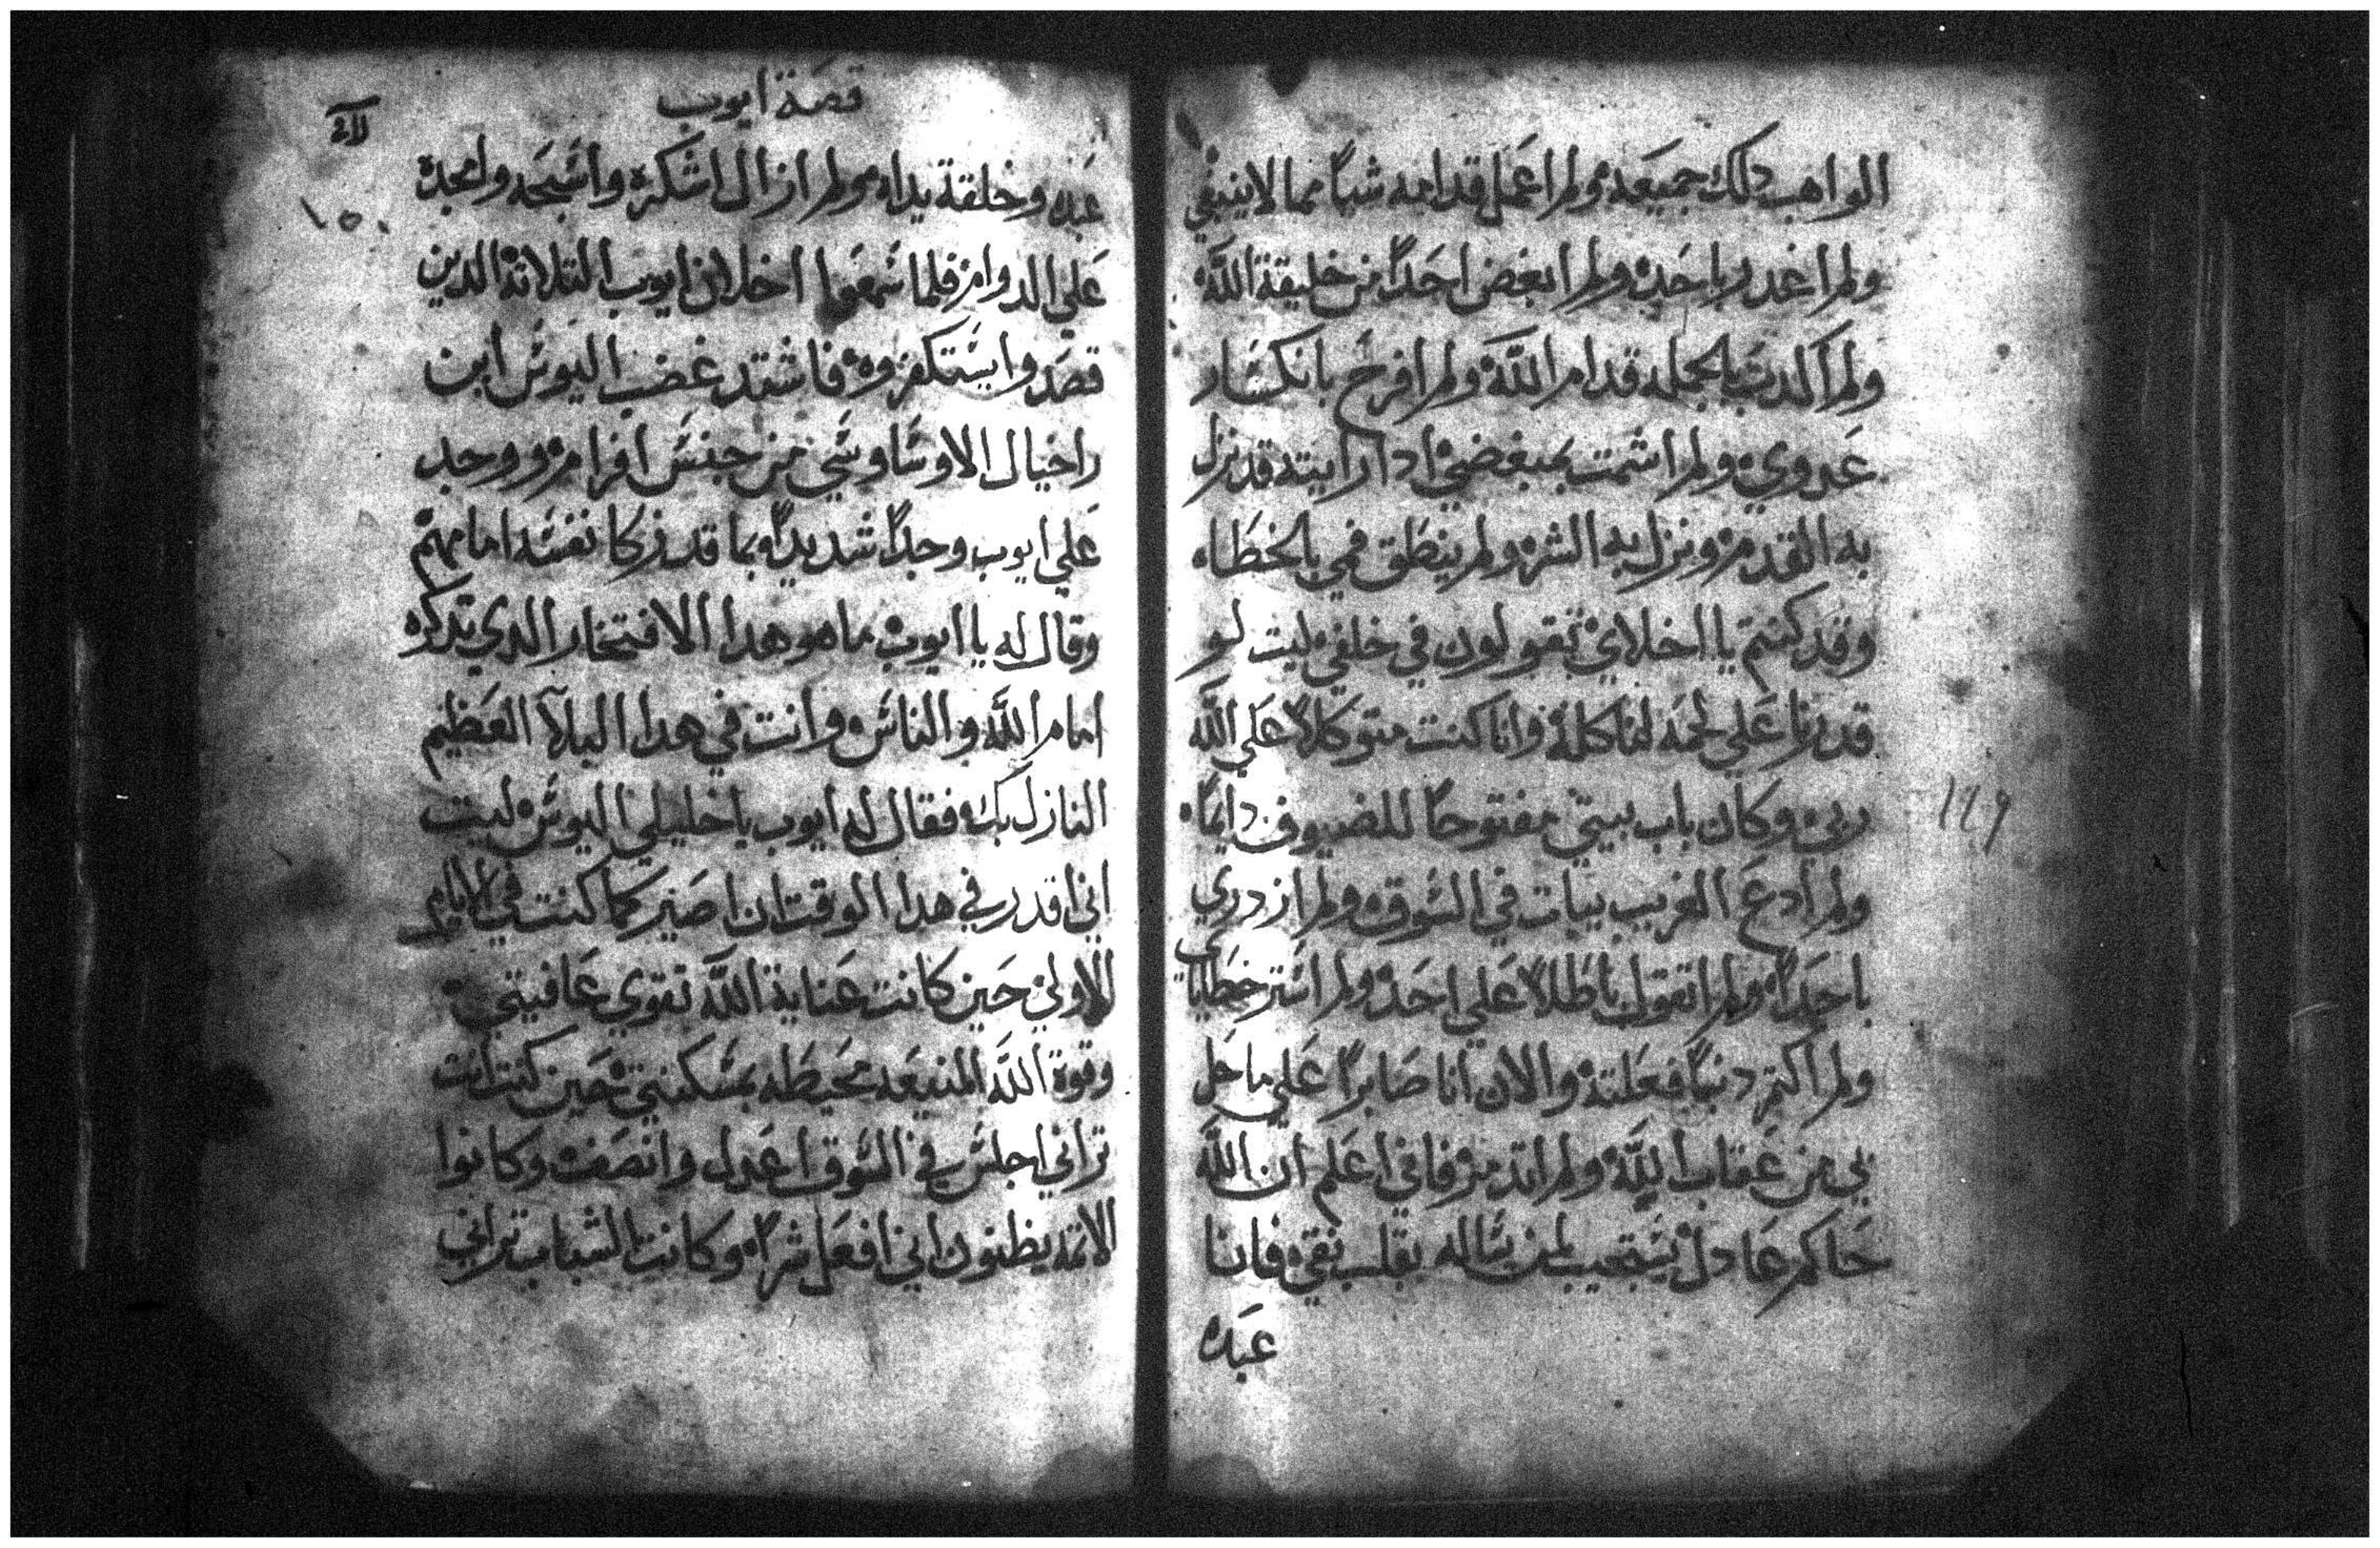 الواهب دلك جميعه ولم اعمل قدامه شياً مما لا ينبغي
ولم اغدر باحده ولم ابغض احداً من خليقة الله
ولم اكدب بالجمله قدام الله ولم افرح بانكسار
عدوي ولم اشمت بمبغضي ادا رايته قد نزل
به القدم ونزل به الشر ولم ينطق فمي بالخطاه
وقد كنتم يا اخلاي تقولون في خلفي ليت لو
قدرنا على لحمه لناكله وانا كنت متوكلاً على الله
ربي وكان باب بيتي مفتوحاً للضيوف دايماً
ولم ادع الغريب يبات في السوق ولم ازدري
باحداً ولم اتقول باطلاً علي احد ولم استر خطاياي
ولم اكتم دنباً فعلته والان انا صابراً علي ما حل
بي من عقاب الله ولم اتدمر فاني اعلم ان الله
حاكم عادل يستجيب لمن يساله بقلب نقي فانا
عبده
قصة ايوب
١٤٩
١٥٠
عبده وخلقة يداه ولم ازال اشكره واسبحه وامجده
علي الدوام فلما سمعوا اخلان ايوب التلاتة الدين
قصدوا يستكفروه فاشتد غضب اليوس ابن
راخيال الاوساوسي من جنس افرام ووجد
علي ايوب وجداً شديداً بما قد زكا نفسه امامهم
وقال له يا ايوب ما هو هدا الافتخار الدي تدكره
امام الله والناس وانت في هدا البلآ العظيم
النازل بك فقال له ايوب يا خليلي اليوس ليت
اني اقدر في هدا الوقت ان اصير كما كنت في الايام
الاولي حين كانت عناية الله تقوي عافيتي
وقوة الله المنيعه محيطه بمسكنتي حين كنت انت
تراني اجلس في السوق اعدل وانصف وكانوا
الائمه يظنون اني افعل شراً وكانت الشباب تراني